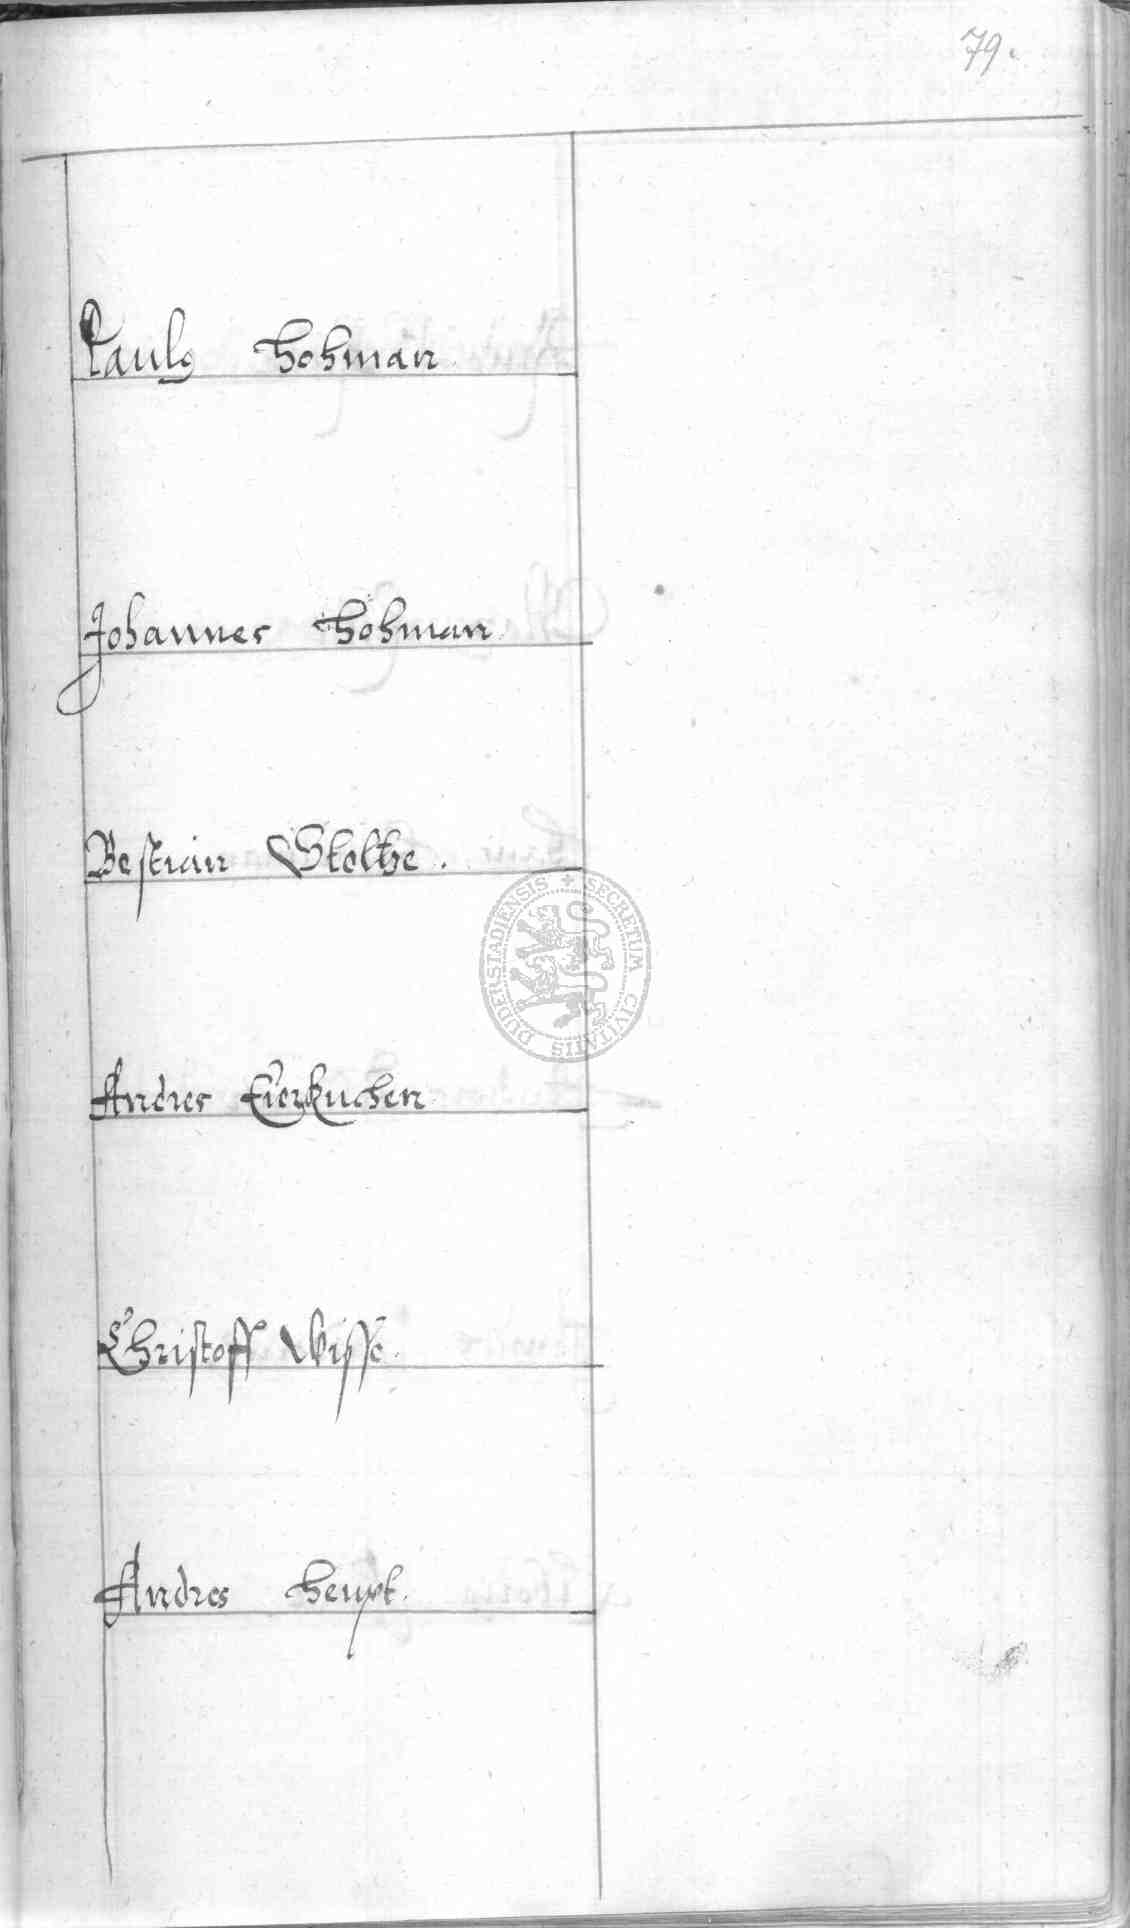 79.
Paulus Hohman
Johannes Hohman
Bestian Stolthe.
Andres Eierkuchen
DUDERSTADIENSIS + SECRETUM CIVITATIS
Christoff Wisse.
Andres Heupt.